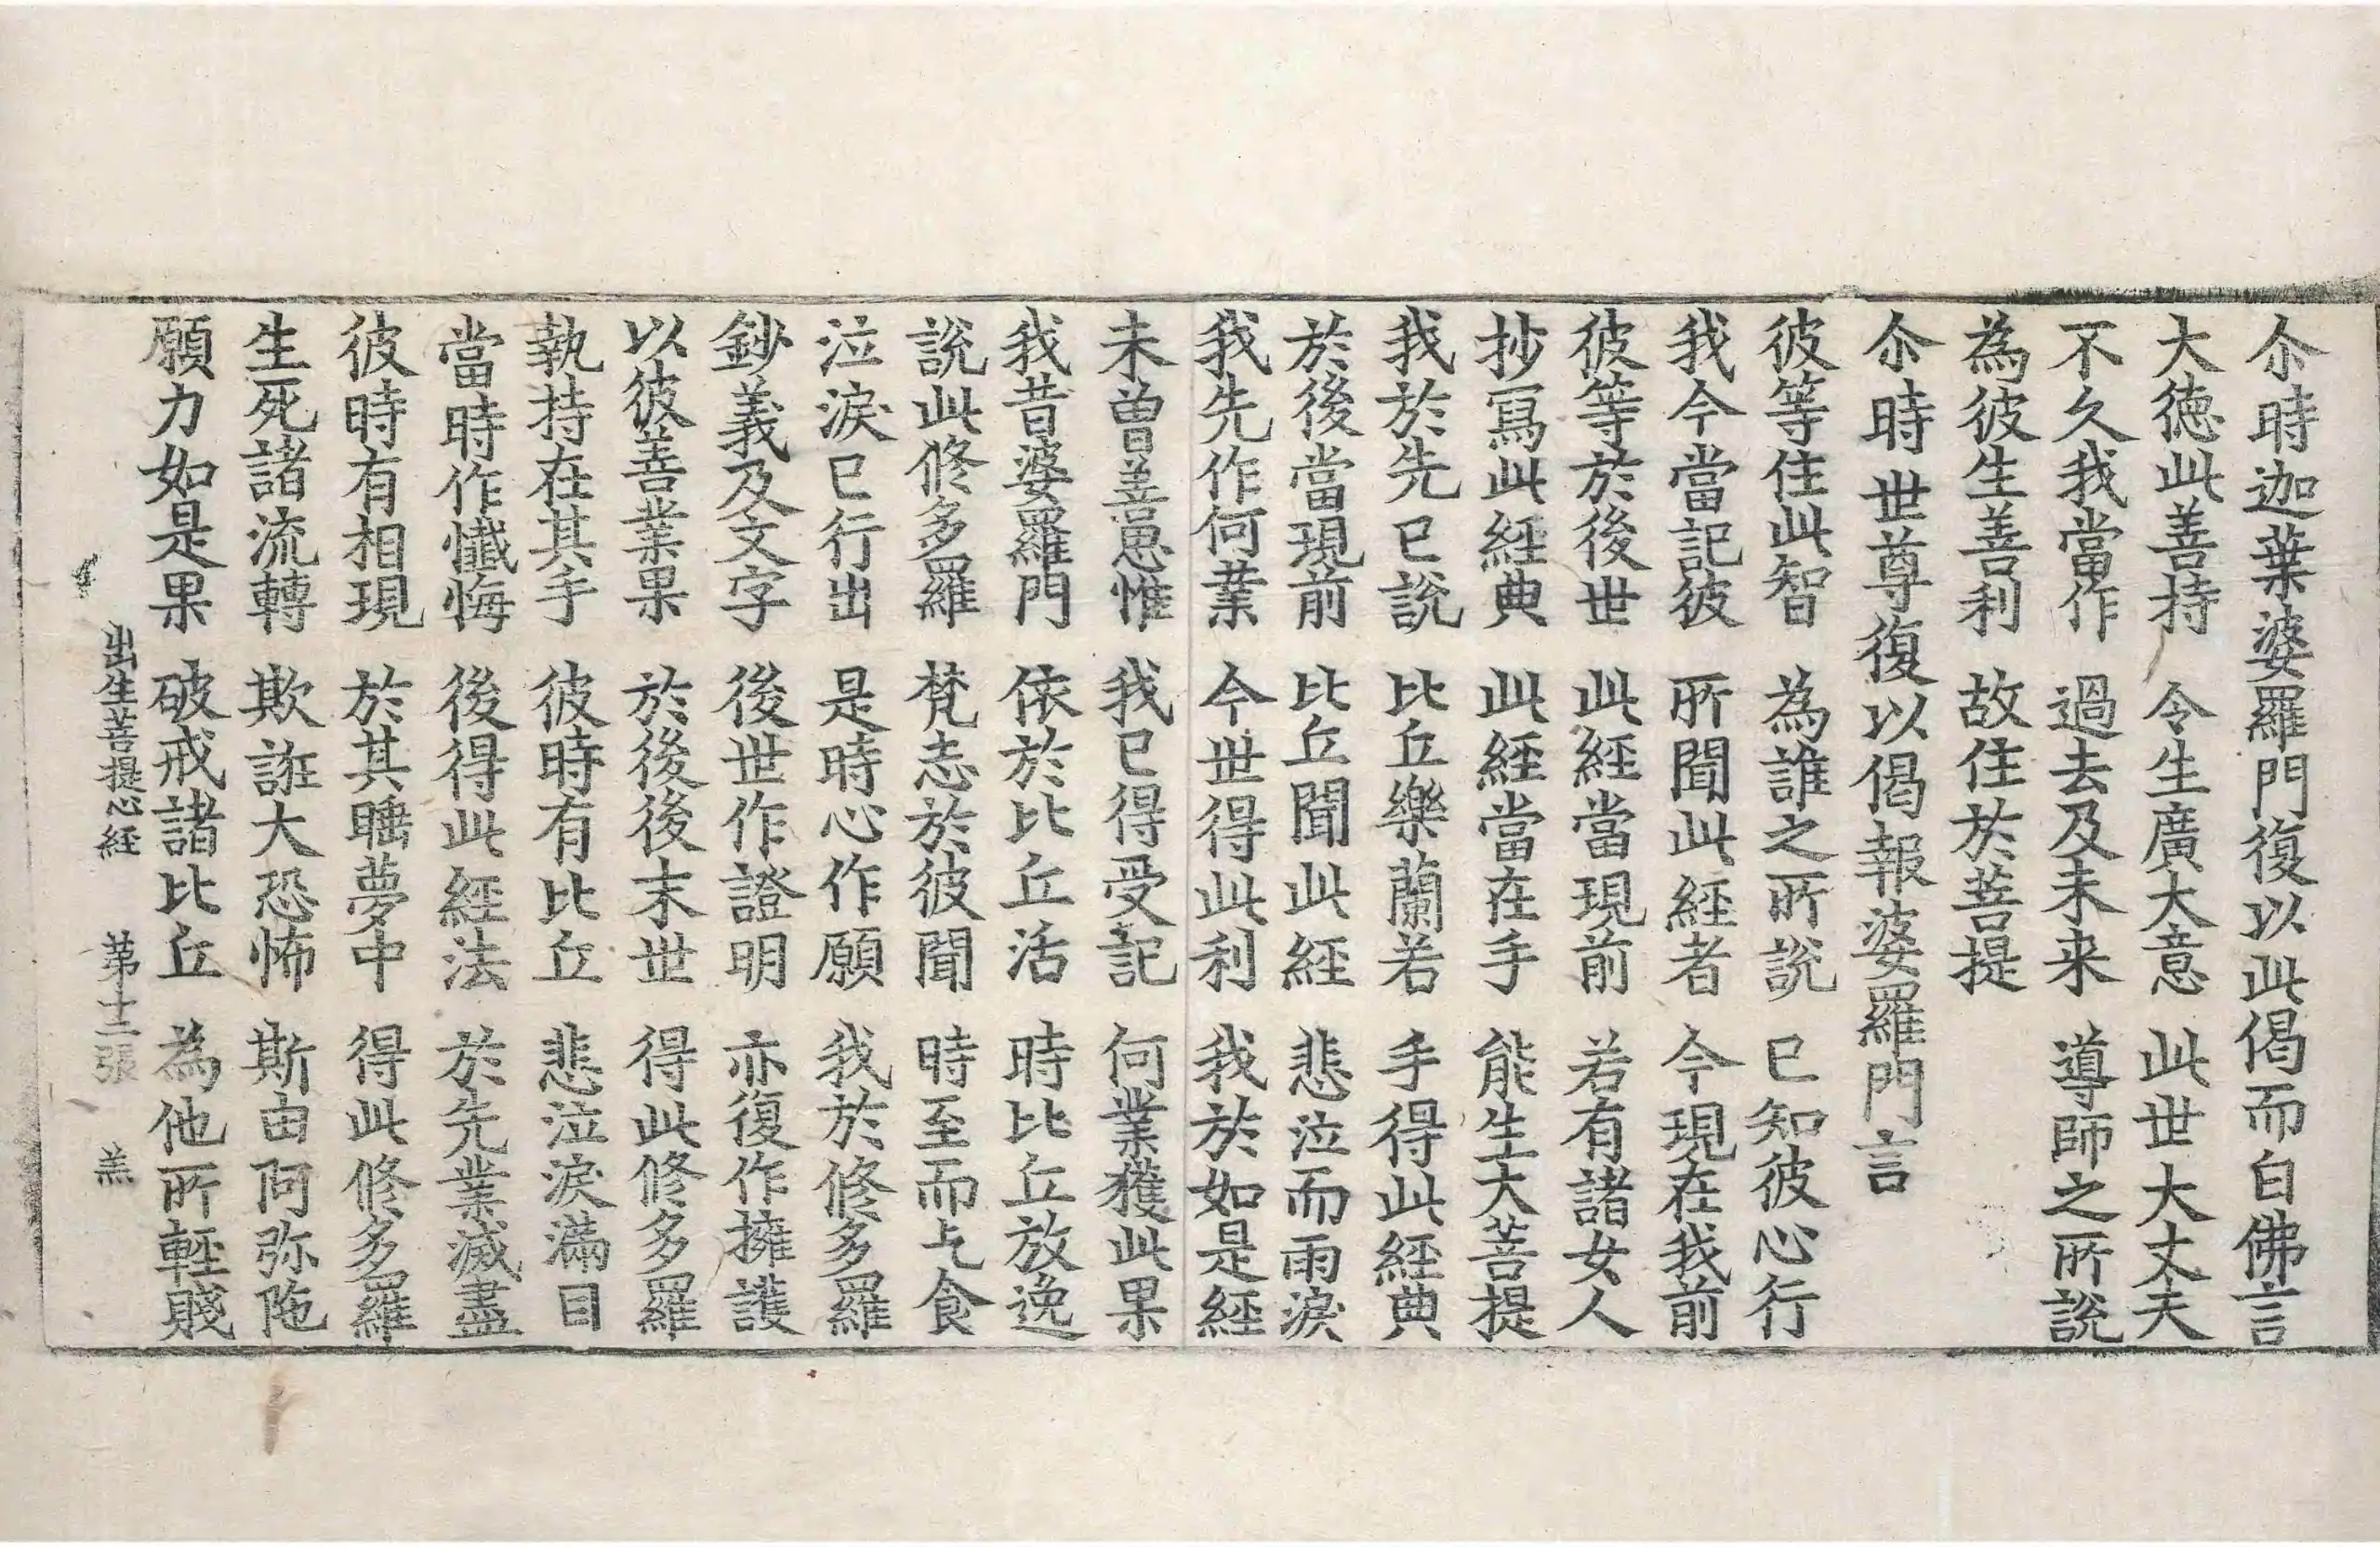 尒時迦葉婆羅門復以此偈而白佛言
大德此善持 令生廣大意 此世大丈夫
不久我當作 過去及未来 導師之所說
為彼生善利 故住於菩提
尒時世尊復以偈報婆羅門言
彼等住此智 為誰之所說 已知彼心行
我今當記彼 所聞此經者 今現在我前
彼等於後世 此經當現前 若有諸女人
抄寫此經典 此經當在手 能生大菩提
我於先已說 比丘樂蘭若 手得此經典
於後當現前 比丘聞此經 悲泣而雨淚
我先作何業 今世得此利 我於如是經
未曾善思惟 我已得受記 何業獲此果
我昔婆羅門 依於比丘活 時比丘放逸
說此修多羅 梵志於彼聞 時至而乞食
泣淚已行出 是時心作願 我於修多羅
鈔義及文字 後世作證明 亦復作擁護
以彼善業果 於後後末世 得此修多羅
執持在其手 彼時有比丘 悲泣淚滿目
當時作懺悔 後得此經法 於先業滅盡
彼時有相現 於其睡夢中 得此修多羅
生死諸流轉 欺誑大恐怖 斯由阿弥陁
願力如是果 破戒諸比丘 為他所輕賤
出生菩提心經 苐十二張 羔